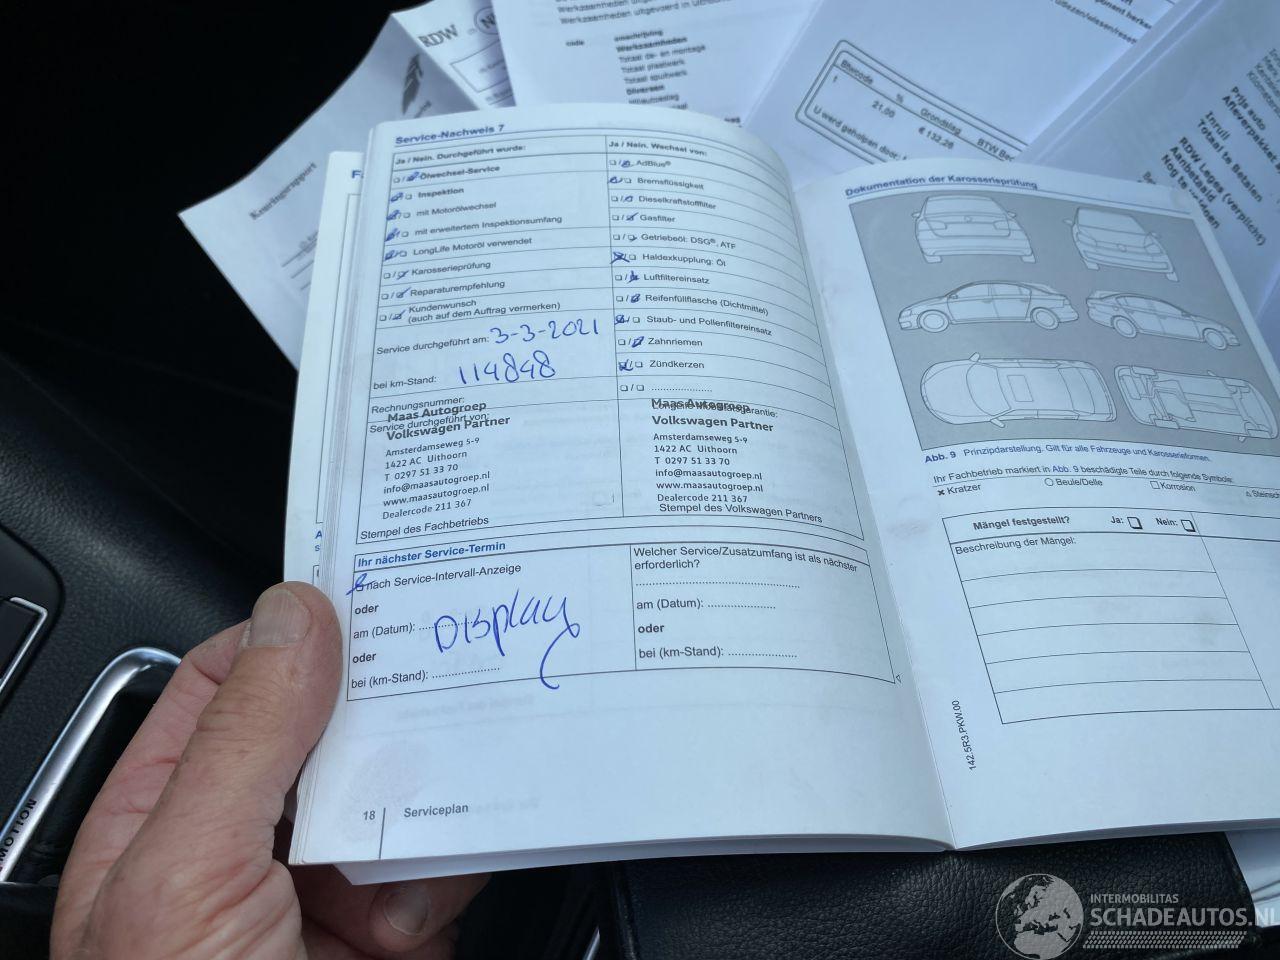 RDW
Keuringsrapport
code omschrijving
Werkzaamheden
Totaal de- en montage
Totaal plaatwerk
Totaal spuitwerk
Diversen
Btwcode % Grondslag
1 21,00 € 133,26
U werd geholpen door:
Prijs auto
Afleverpakket
Inruil
Totaal te Betalen
RDW Leges (verplicht)
Aanbetaald
Service-Nachweis 7
Ja / Nein. Durchgeführt wurde:
Ölwechsel-Service
Inspektion
mit Motorölwechsel
mit erweitertem Inspektionsumfang
LongLife Motoröl verwendet
Karosserieprüfung
Reparaturempfehlung
Kundenwunsch
(auch auf dem Auftrag vermerken)
Service durchgeführt am: 3-3-2021
bei km-Stand: 114848
Rechnungsnummer:
Maas Autogroep
Service durchgeführt von:
Volkswagen Partner
Amsterdamseweg 5-9
1422 AC Uithoorn
T 0297 51 33 70
info@maasautogroep.nl
www.maasautogroep.nl
Dealercode 211 367
Stempel des Fachbetriebs
Ja / Nein. Wechsel von:
AdBlue®
Bremsflüssigkeit
Dieselkraftstofffilter
Gasfilter
Getriebeöl: DSG®, ATF
Haldexkupplung: Öl
Luftfiltereinsatz
Reifenfüllflasche (Dichtmittel)
Staub- und Pollenfiltereinsatz
Zahnriemen
Zündkerzen
Maas Autogroep
Volkswagen Partner
Amsterdamseweg 5-9
1422 AC Uithoorn
T 0297 51 33 70
info@maasautogroep.nl
www.maasautogroep.nl
Dealercode 211 367
Stempel des Volkswagen Partners
Ihr nächster Service-Termin
nach Service-Intervall-Anzeige
oder
am (Datum): Display
oder
bei (km-Stand):
Welcher Service/Zusatzumfang ist als nächster
erforderlich?
am (Datum):
oder
bei (km-Stand):
18 Serviceplan
Dokumentation der Karosserieprüfung
Abb. 9 Prinzipdarstellung. Gilt für alle Fahrzeuge und Karosserieformen.
Ihr Fachbetrieb markiert in Abb. 9 beschädigte Teile durch folgende Symbole:
× Kratzer Beule/Delle Korrosion
Mängel festgestellt? Ja: Nein:
Beschreibung der Mängel:
142.5R3.PKW.00
MOTION
INTERMOBILITAS
SCHADEAUTOS.NL